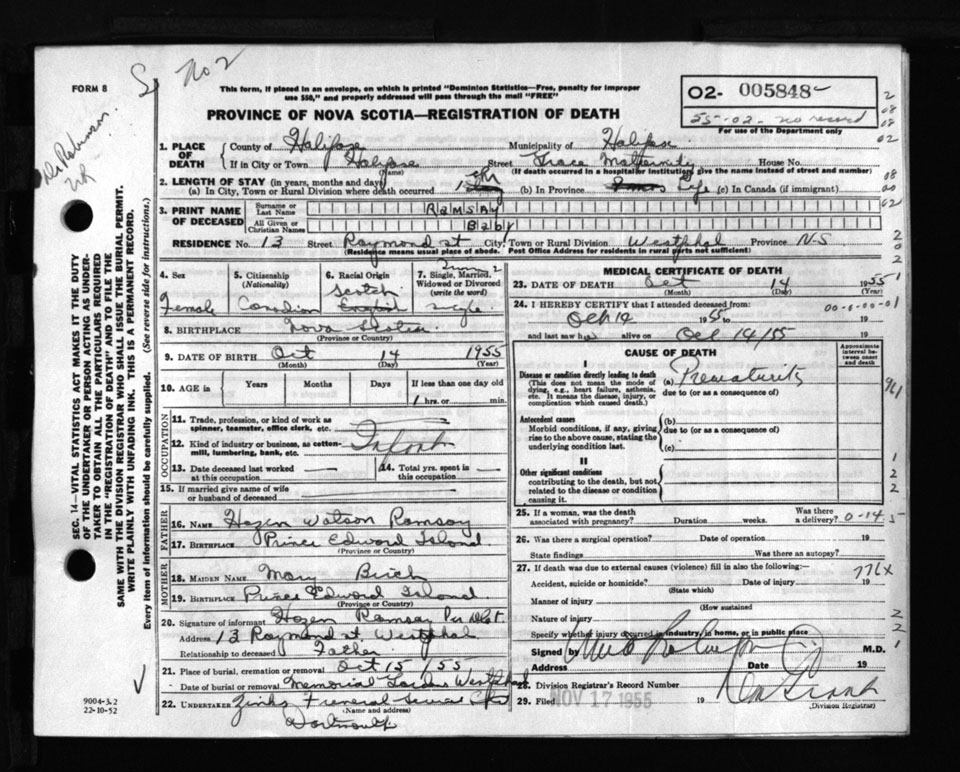 No 2
FORM 8
This form, if placed in an envelope, on which is printed "Dominion Statistics—Free, penalty for improper
use $50," and properly addressed will pass through the mail "FREE"
02- 005848-
55-02- no record
For use of the Department only
PROVINCE OF NOVA SCOTIA—REGISTRATION OF DEATH
1. PLACE OF DEATH
County of Halifax Municipality of Halifax
If in City or Town Halifax Street Grace Maternity House No.
(Name) (If death occurred in a hospital or institution, give the name instead of street and number)
2. LENGTH OF STAY (in years, months and days)
(a) In City, Town or Rural Division where death occurred 1 hr (b) In Province Life (c) In Canada (if immigrant)
3. PRINT NAME OF DECEASED
Surname or Last Name RAMSAY
All Given or Christian Names Baby
RESIDENCE No. 13 Street Raymond st City, Town or Rural Division Westphal Province N-S
(Residence means usual place of abode. Post Office Address for residents in rural parts not sufficient)
4. Sex Female
5. Citizenship (Nationality) Canadian
6. Racial Origin Scotch English
7. Single, Married, Widowed or Divorced (write the word) gle
8. BIRTHPLACE Nova Scotia
(Province or Country)
9. DATE OF BIRTH Oct 14 1955
(Month) (Day) (Year)
10. AGE in Years Months Days If less than one day old
1 hrs. or min.
OCCUPATION
11. Trade, profession, or kind of work as
spinner, teamster, office clerk, etc.
12. Kind of industry or business, as cotton-
mill, lumbering, bank, etc. Infant
13. Date deceased last worked
at this occupation
14. Total yrs. spent in
this occupation
15. If married give name of wife
or husband of deceased
FATHER
16. NAME Hazen Watson Ramsay
17. BIRTHPLACE Prince Edward Island
(Province or Country)
MOTHER
18. MAIDEN NAME Mary Birch
19. BIRTHPLACE Prince Edward Island
(Province or Country)
20. Signature of informant Hazen Ramsay Per
Address 13 Raymond st. Westphal
Relationship to deceased Father
21. Place of burial, cremation or removal Oct 15/55
Date of burial or removal Memorial Garden Westphal
22. UNDERTAKER Zinks Funeral Service
(Name and address)
Dartmouth
MEDICAL CERTIFICATE OF DEATH
23. DATE OF DEATH Oct 14 1955
(Month) (Day) (Year)
24. I HEREBY CERTIFY that I attended deceased from
Oct 14 1955 to 19
and last saw h alive on Oct 14/55 19
00-0-00-01
CAUSE OF DEATH
Approximate interval between onset and death
I
Disease or condition directly leading to death
(This does not mean the mode of
dying, e.g., heart failure, asthenia,
etc. It means the disease, injury, or
complication which caused death.)
(a) Prematurity
due to (or as a consequence of)
Antecedent causes
Morbid conditions, if any, giving
rise to the above cause, stating the
underlying condition last.
(b)
due to (or as a consequence of)
(c)
II
Other significant conditions
contributing to the death, but not
related to the disease or condition
causing it.
25. If a woman, was the death
associated with pregnancy? Duration weeks. Was there
a delivery? 0-14 5
26. Was there a surgical operation? Date of operation 19
State findings Was there an autopsy?
27. If death was due to external causes (violence) fill in also the following:
776X
Accident, suicide or homicide? Date of injury 19
(State which)
Manner of injury
(How sustained
Nature of injury
Specify whether injury occurred in industry, in home, or in public place
Signed by M.D.
Address Date 19
28. Division Registrar's Record Number
29. Filed NOV 17 1955 19
(Division Registrar)
SEC. 14—VITAL STATISTICS ACT MAKES IT THE DUTY
OF THE UNDERTAKER OR PERSON ACTING AS UNDER-
TAKER TO OBTAIN ALL THE PARTICULARS REQUIRED
IN THE "REGISTRATION OF DEATH" AND TO FILE THE
SAME WITH THE DIVISION REGISTRAR WHO SHALL ISSUE THE BURIAL PERMIT.
WRITE PLAINLY WITH UNFADING INK. THIS IS A PERMANENT RECORD.
Every item of information should be carefully supplied. (See reverse side for instructions.)
Dr Robinson
9004-3.2
22-10-52